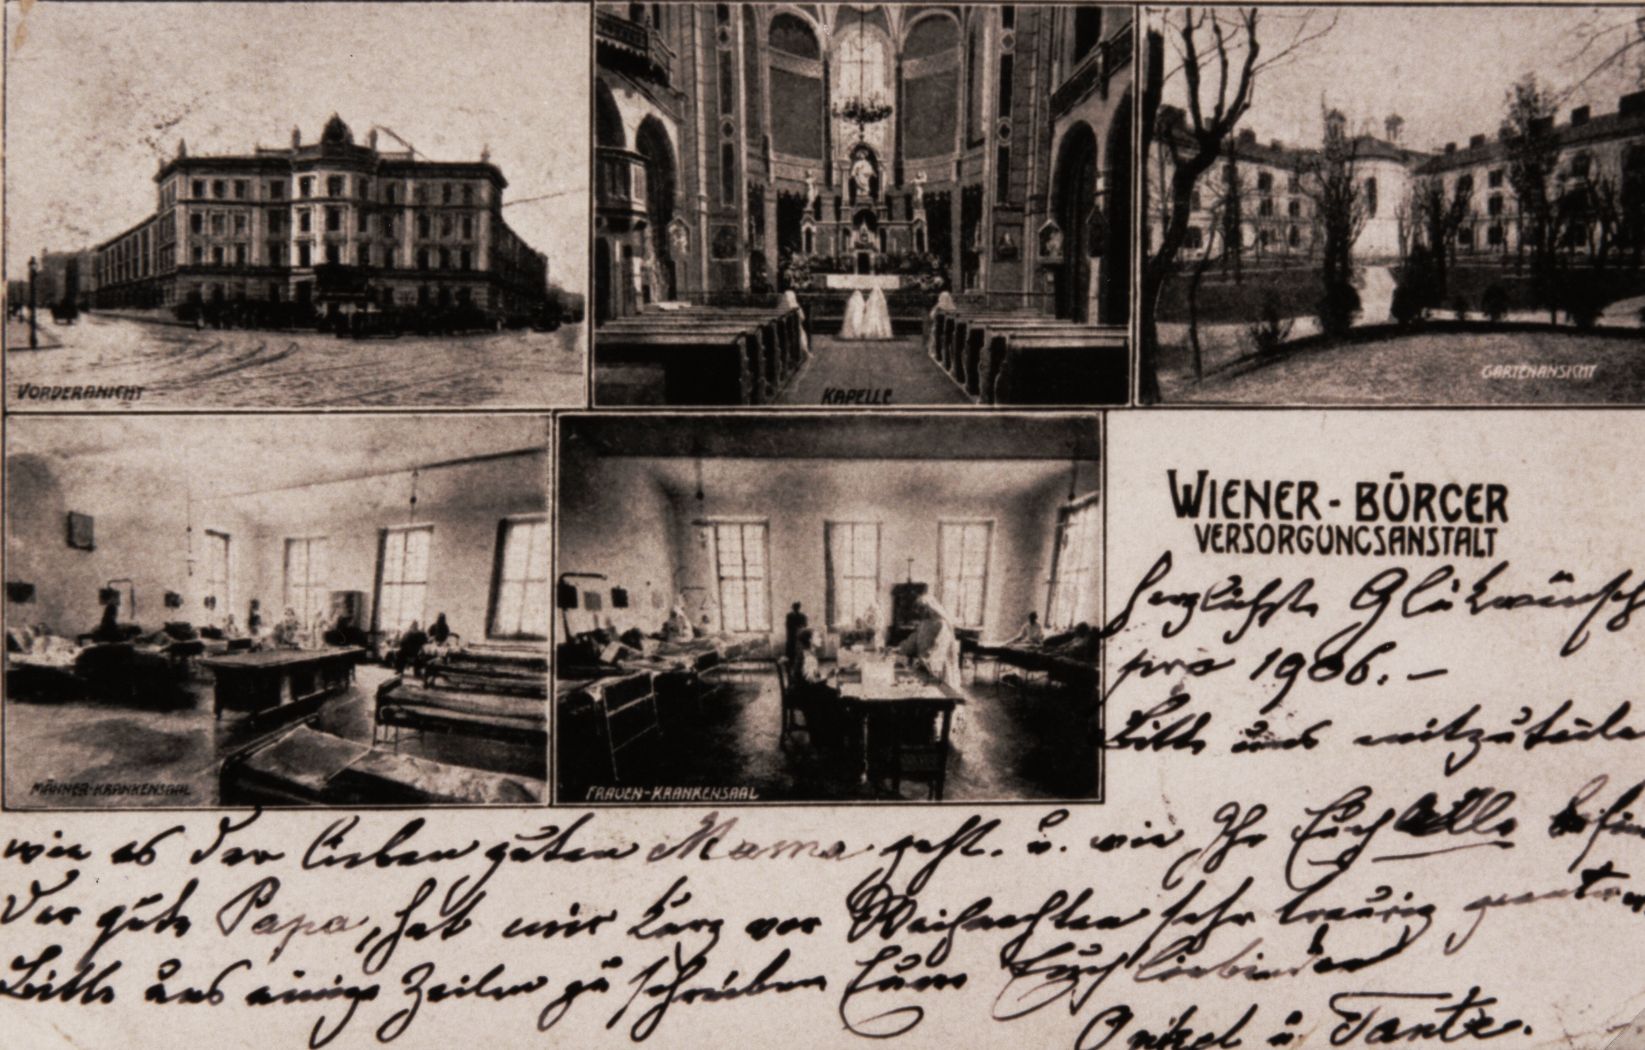 VORDERANICHT
KAPELLE
GARTENANSICHT
MÄNNER-KRANKENSAAL
FRAUEN-KRANKENSAAL
WIENER-BÜRGER
VERSORGUNGSANSTALT
Herzlichste Glückwünsch
pro 1906.–
Bitte uns mitzuteile
wie es der lieben guten Mama geht. u. wie Ihr Euch alle befin
Der gute Papa, hat mir kurz vor Weihnachten sehr traurig
Bitte uns einige Zeilen zu schreiben Eure Euch liebenden
Onkel u. Tante.